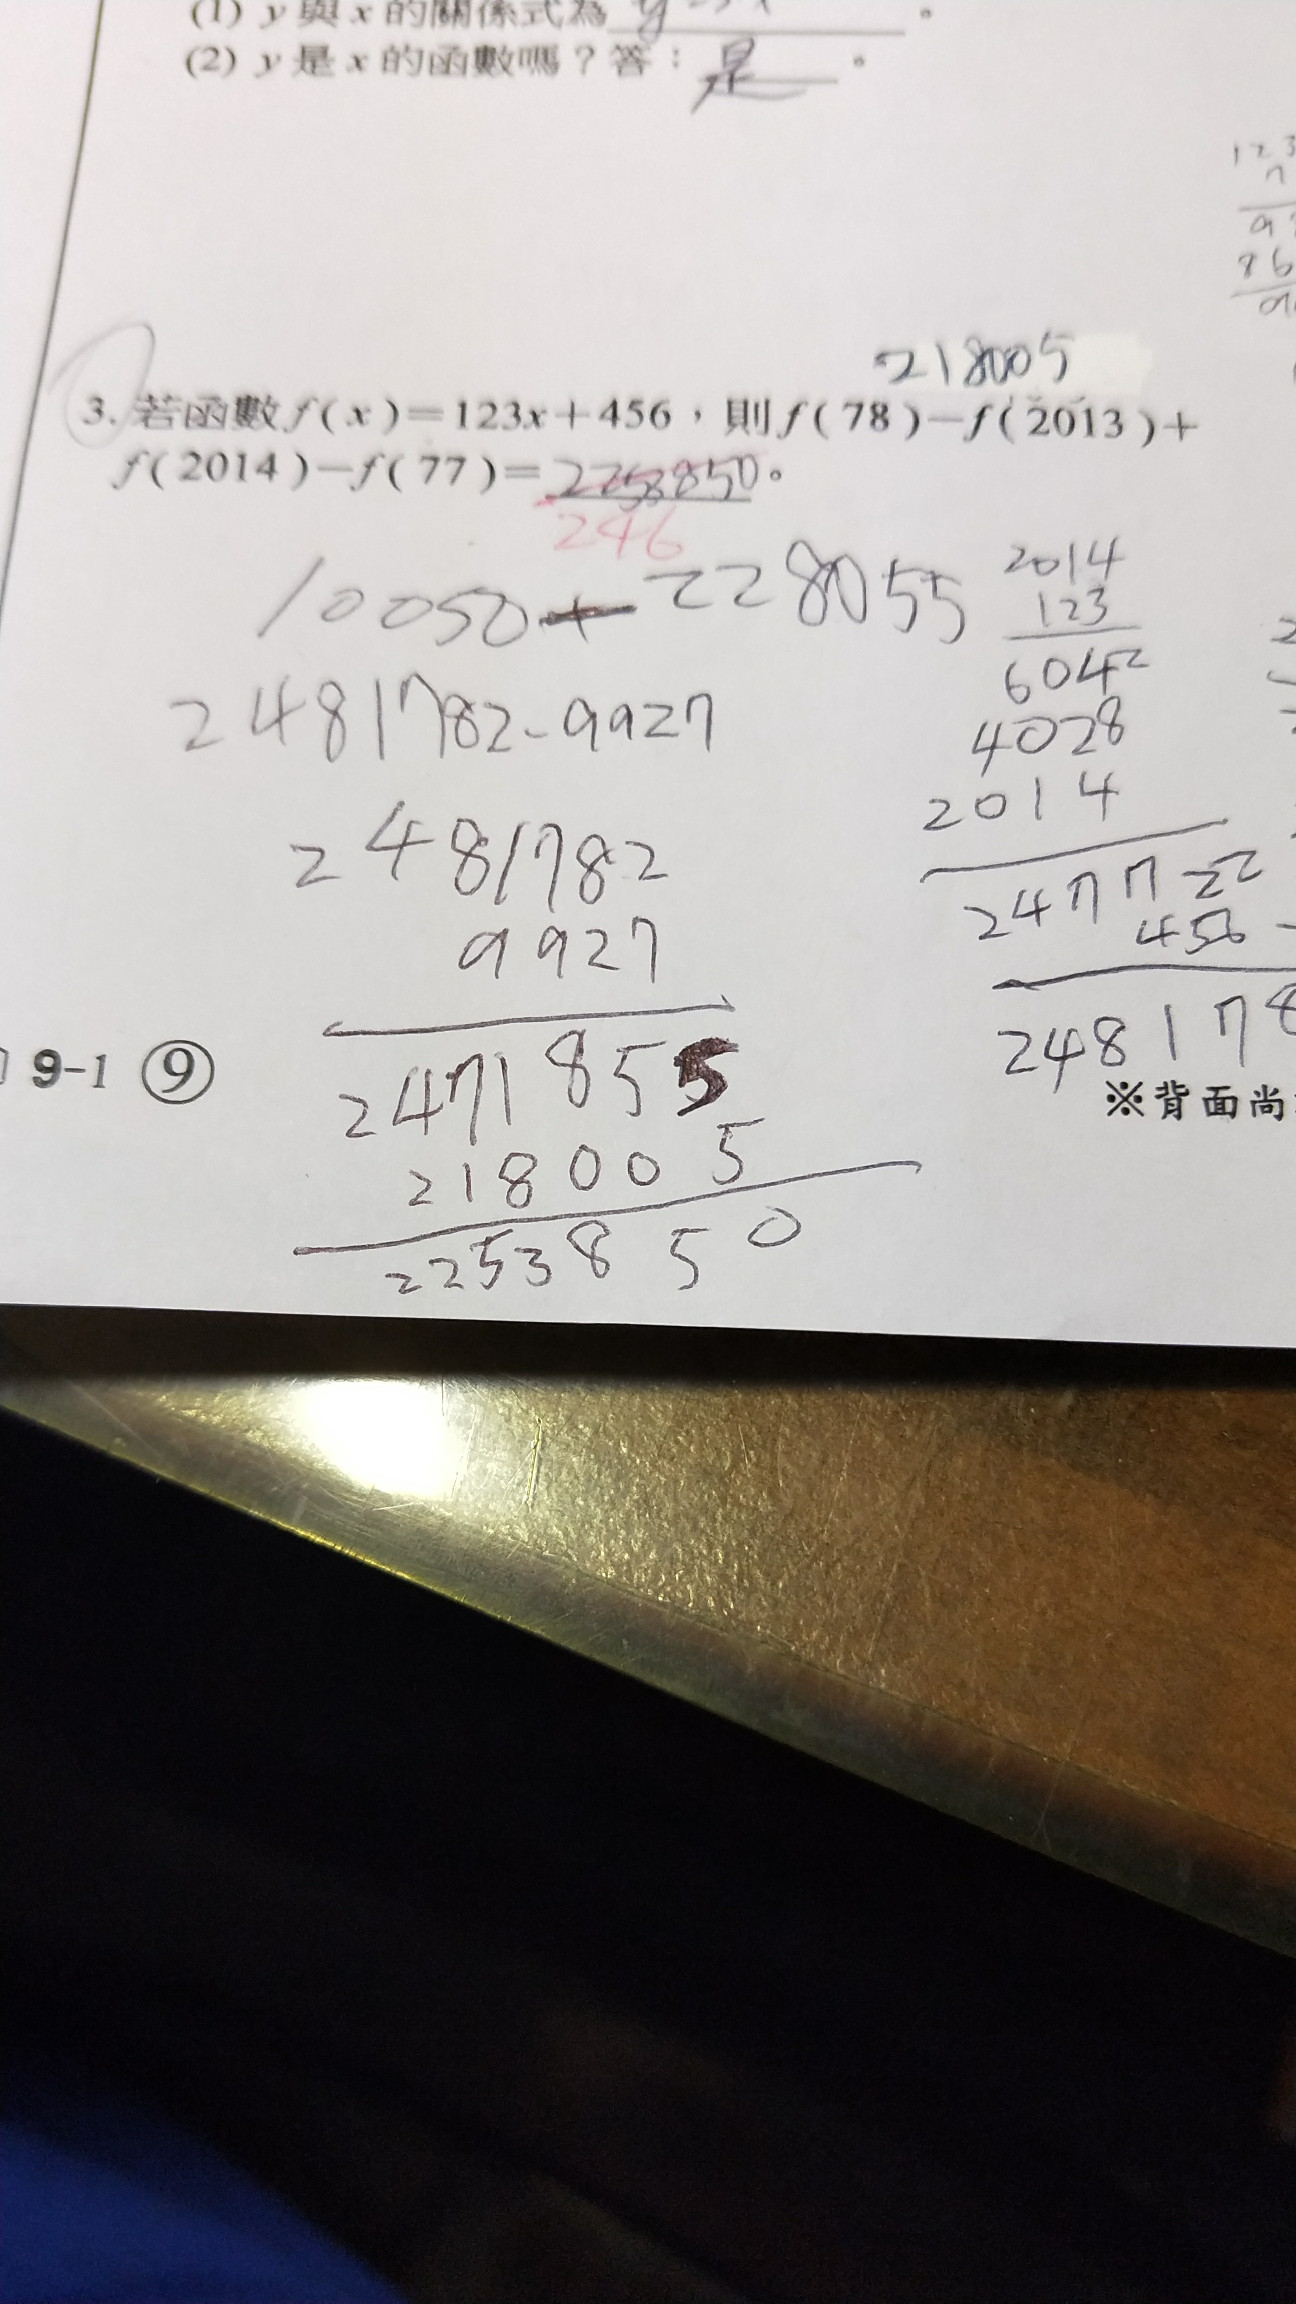 (1) y 與 x 的關係式為
(2) y 是 x 的函數嗎？答：是。
218005
3. 若函數 f(x)=123x+456，則 f(78)-f(2013)+
f(2014)-f(77)=2253850。
246
10050+228055
2481782-9927
2481782
9927
2471855
218005
2253850
2014
123
6042
4028
2014
247722
456
248178
9-1 ⑨
※背面尚